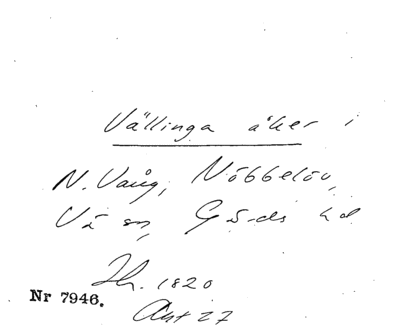 Vällinga åker i
N. Vång, Nöbbelöv,
Vä sn, Gärds hd
Sk. 1820
Nr 7946.
Akt 27